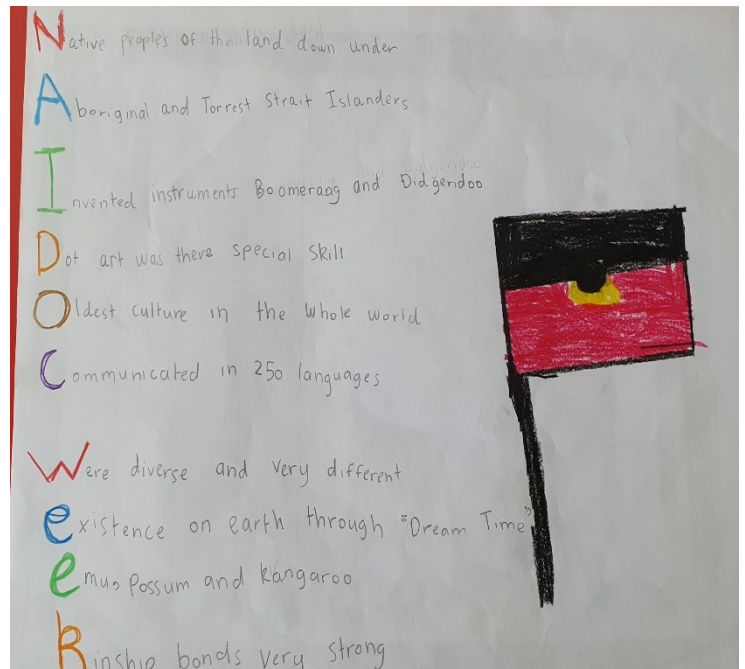 Native peoples of the land down under
Aboriginal and Torrest Strait Islanders
Invented instruments Boomerang and Didgeridoo
Dot art was there special skill
Oldest culture in the whole world
Communicated in 250 languages
Were diverse and very different
existence on earth through "Dream Time"
emu, Possum and Kangaroo
kinship bonds very strong